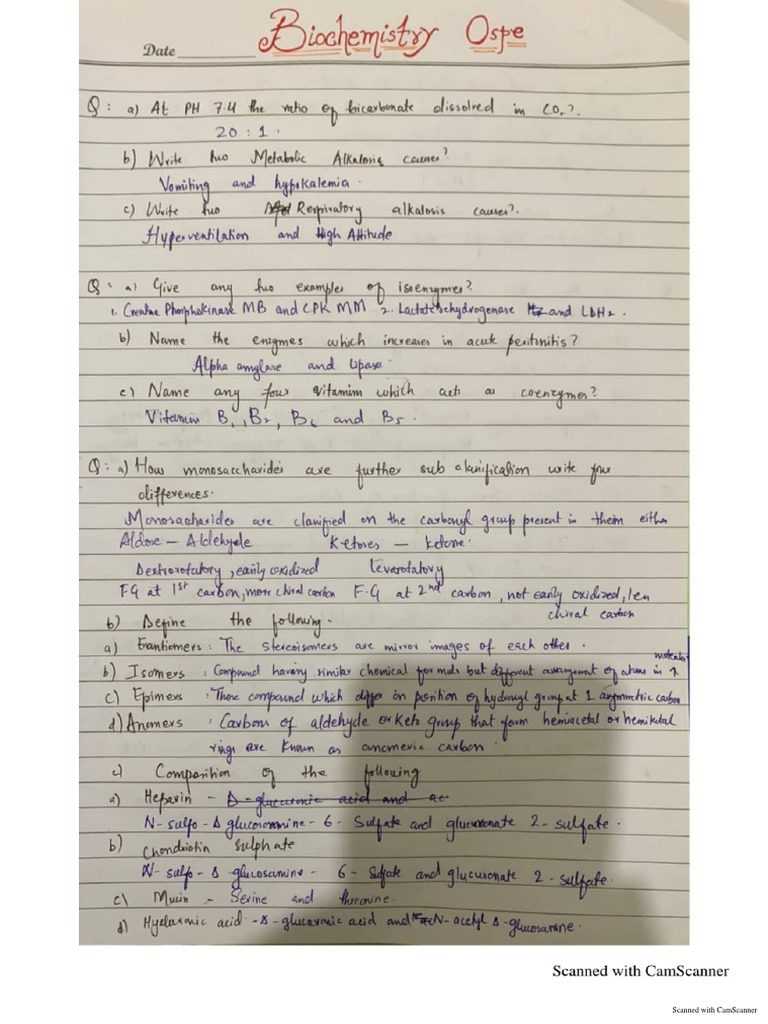 Biochemistry Ospe
Date
Q: a) At PH 7.4 the ratio of bicarbonate dissolved in CO2?
20 : 1.
b) Write two Metabolic Alkalosis causes?
Vomiting and hypokalemia.
c) Write two Respiratory alkalosis causes?
Hyperventilation and High Altitude
Q: a) Give any two examples of isoenzymes?
1. Creatine Phosphokinase MB and CPK MM 2. Lactatdehydrogenase and LDH2.
b) Name the enzymes which increases in acute peritinitis?
Alpha amylase and lipase.
c) Name any four vitamins which acts as coenzymes?
Vitamins B1, B2, B6 and B5.
Q: a) How monosaccharides are further sub classification write four
differences.
Monosacharides are classified on the carbonyl group present in them either
Aldose - Aldehyde Ketoses - Ketone.
Dextrorotatory, easily oxidized Leverotatory
F.G at 1st carbon, more chiral carbon F.G at 2nd carbon, not easily oxidized, less
chiral carbon
b) Define the following.
a) Enantiomers: The stereoisomers are mirror images of each other.
b) Isomers: Compound having similar chemical formula but different arrangement of atoms in molecules
c) Epimers: Those compound which differ in position of hydroxyl group at 1 asymmetric carbon
d) Anomers: Carbons of aldehyde or Keto group that form hemiacetal or hemiketal
rings are known as anomeric carbon.
c) Composition of the following
a) Heparin - D-glucuronic acid and ac
N-sulfo-D glucosamine-6-Sulfate and glucuronate 2-sulfate.
b) Chondriotin sulphate
N-sulfo-D glucosamine-6-Sulfate and glucuronate 2-sulfate.
c) Mucin - Serine and threonine.
d) Hyaluronic acid -D-glucuronic acid and N-acetyl D-glucosamine.
Scanned with CamScanner
Scanned with CamScanner